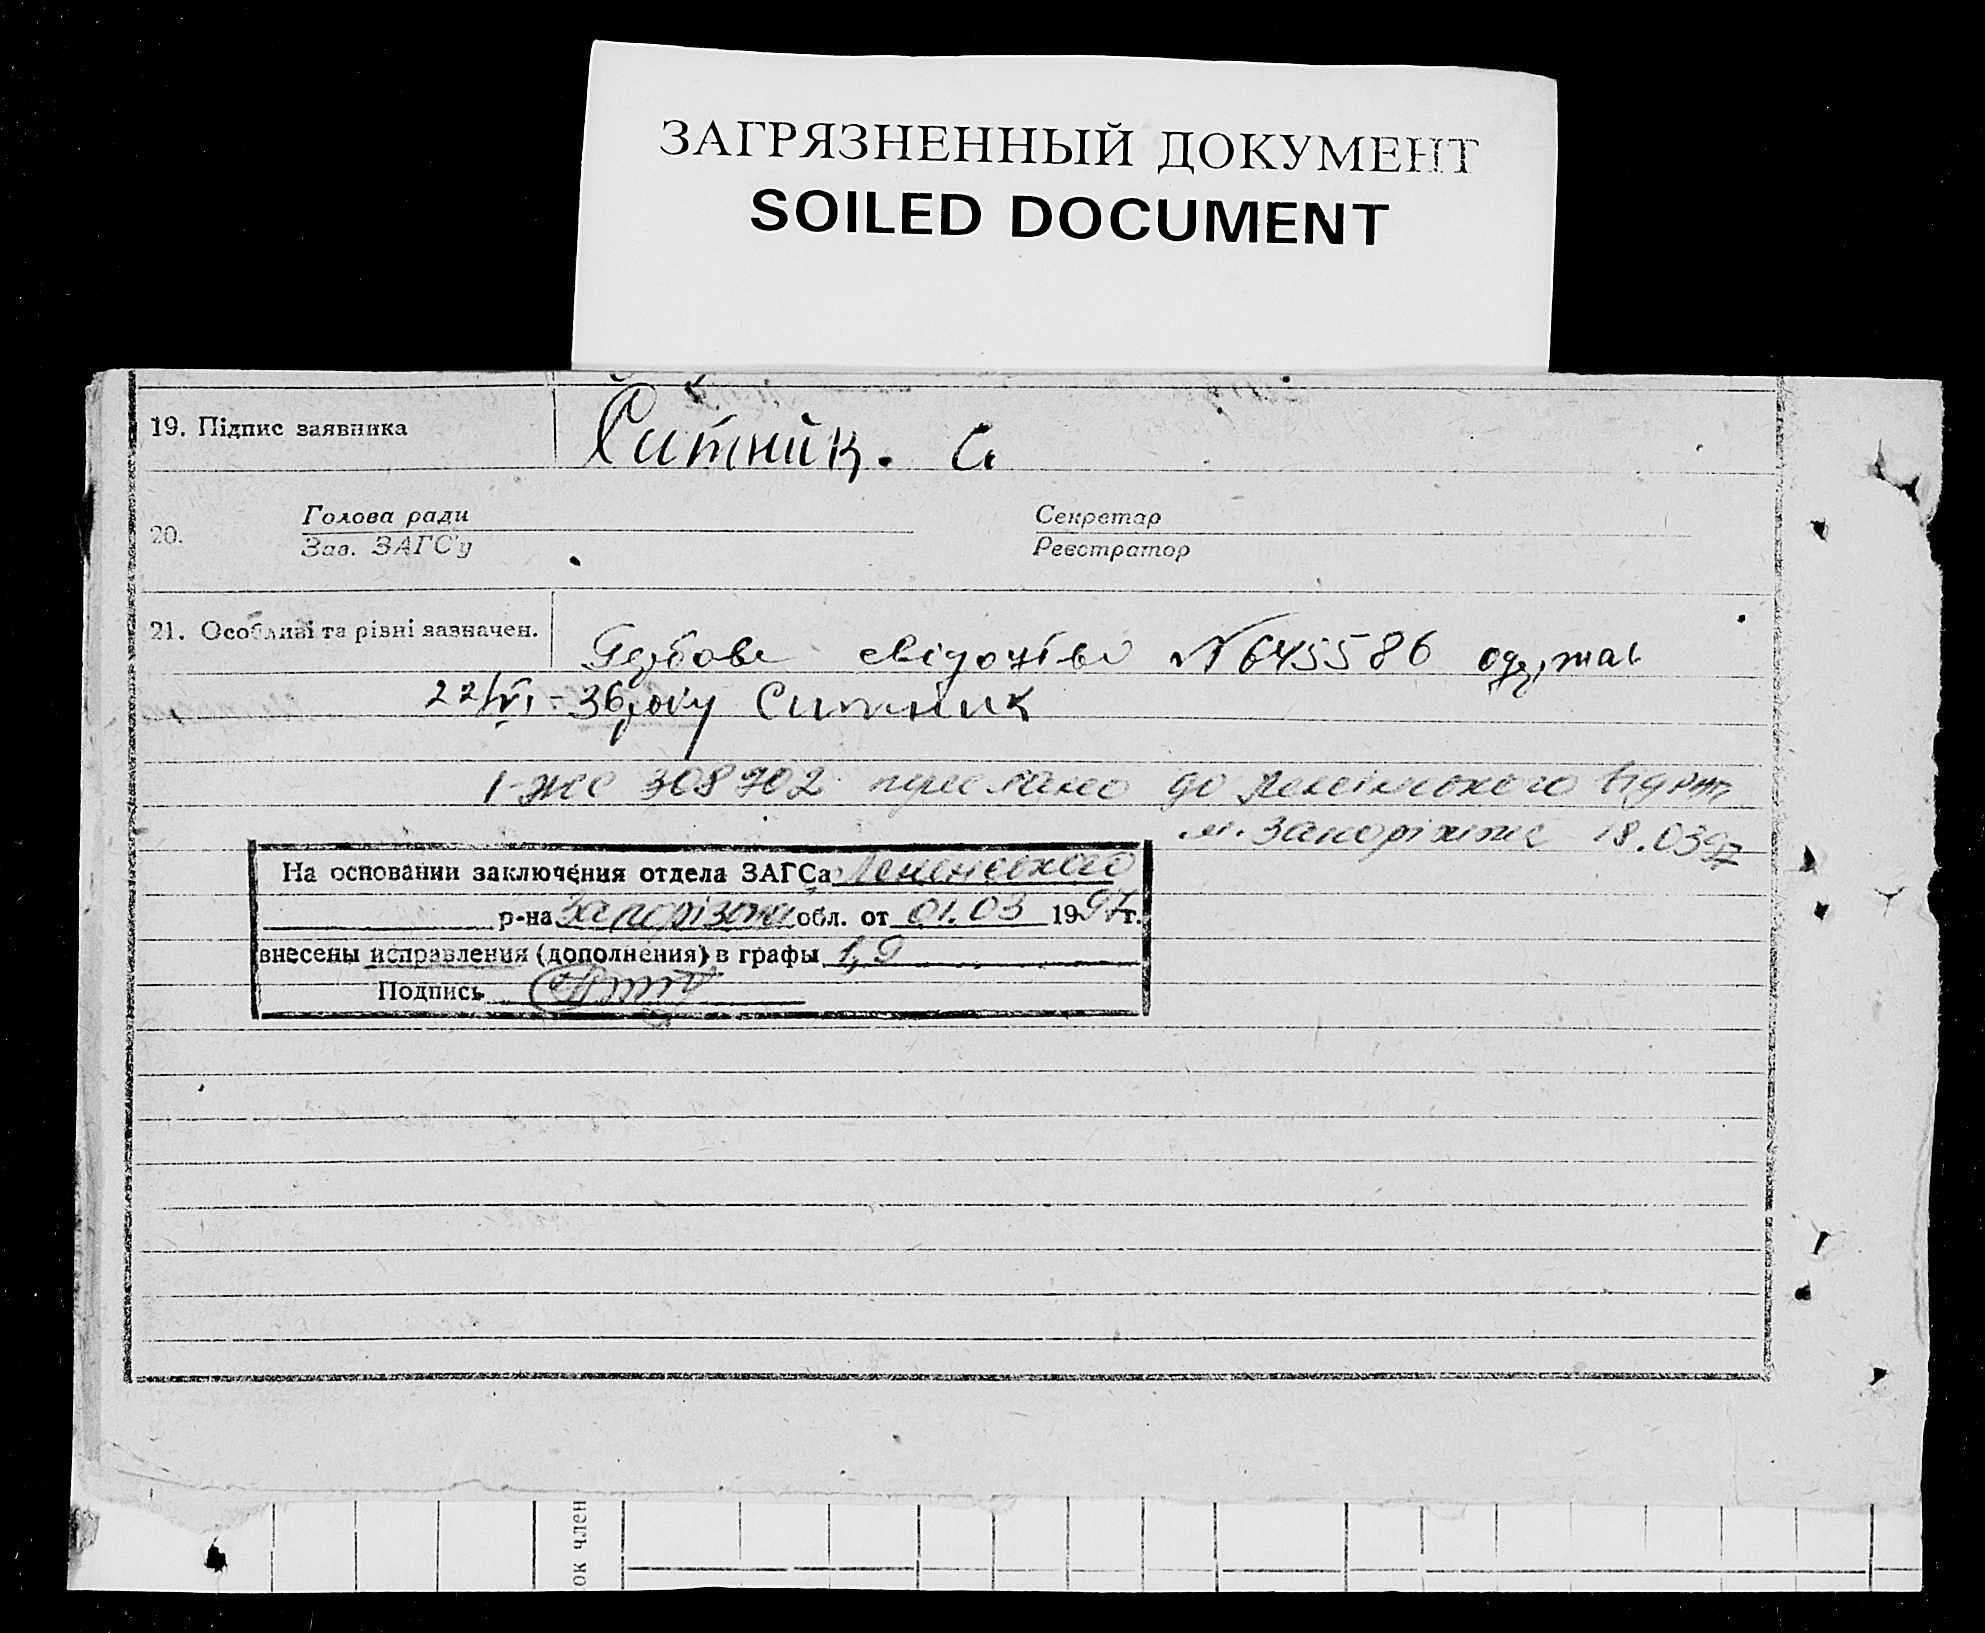 ЗАГРЯЗНЕННЫЙ ДОКУМЕНТ
SOILED DOCUMENT
19. Підпис заявника Ситник. С.
20. Голова ради Секретар
Зав. ЗАГС'у Реєстратор
21. Особливі та рівні зазначен. Гербове свідоцтво №645586 одержав
22/VI-36 року Ситник
І-ЖС 308702 переслано до Ленінського
м. Запоріжжя 18.03.97
На основании заключения отдела ЗАГСа Ленінського
р-на Запорізької обл. от 01.03 1997г.
внесены исправления (дополнения) в графы 1,9
Подпись
ок член